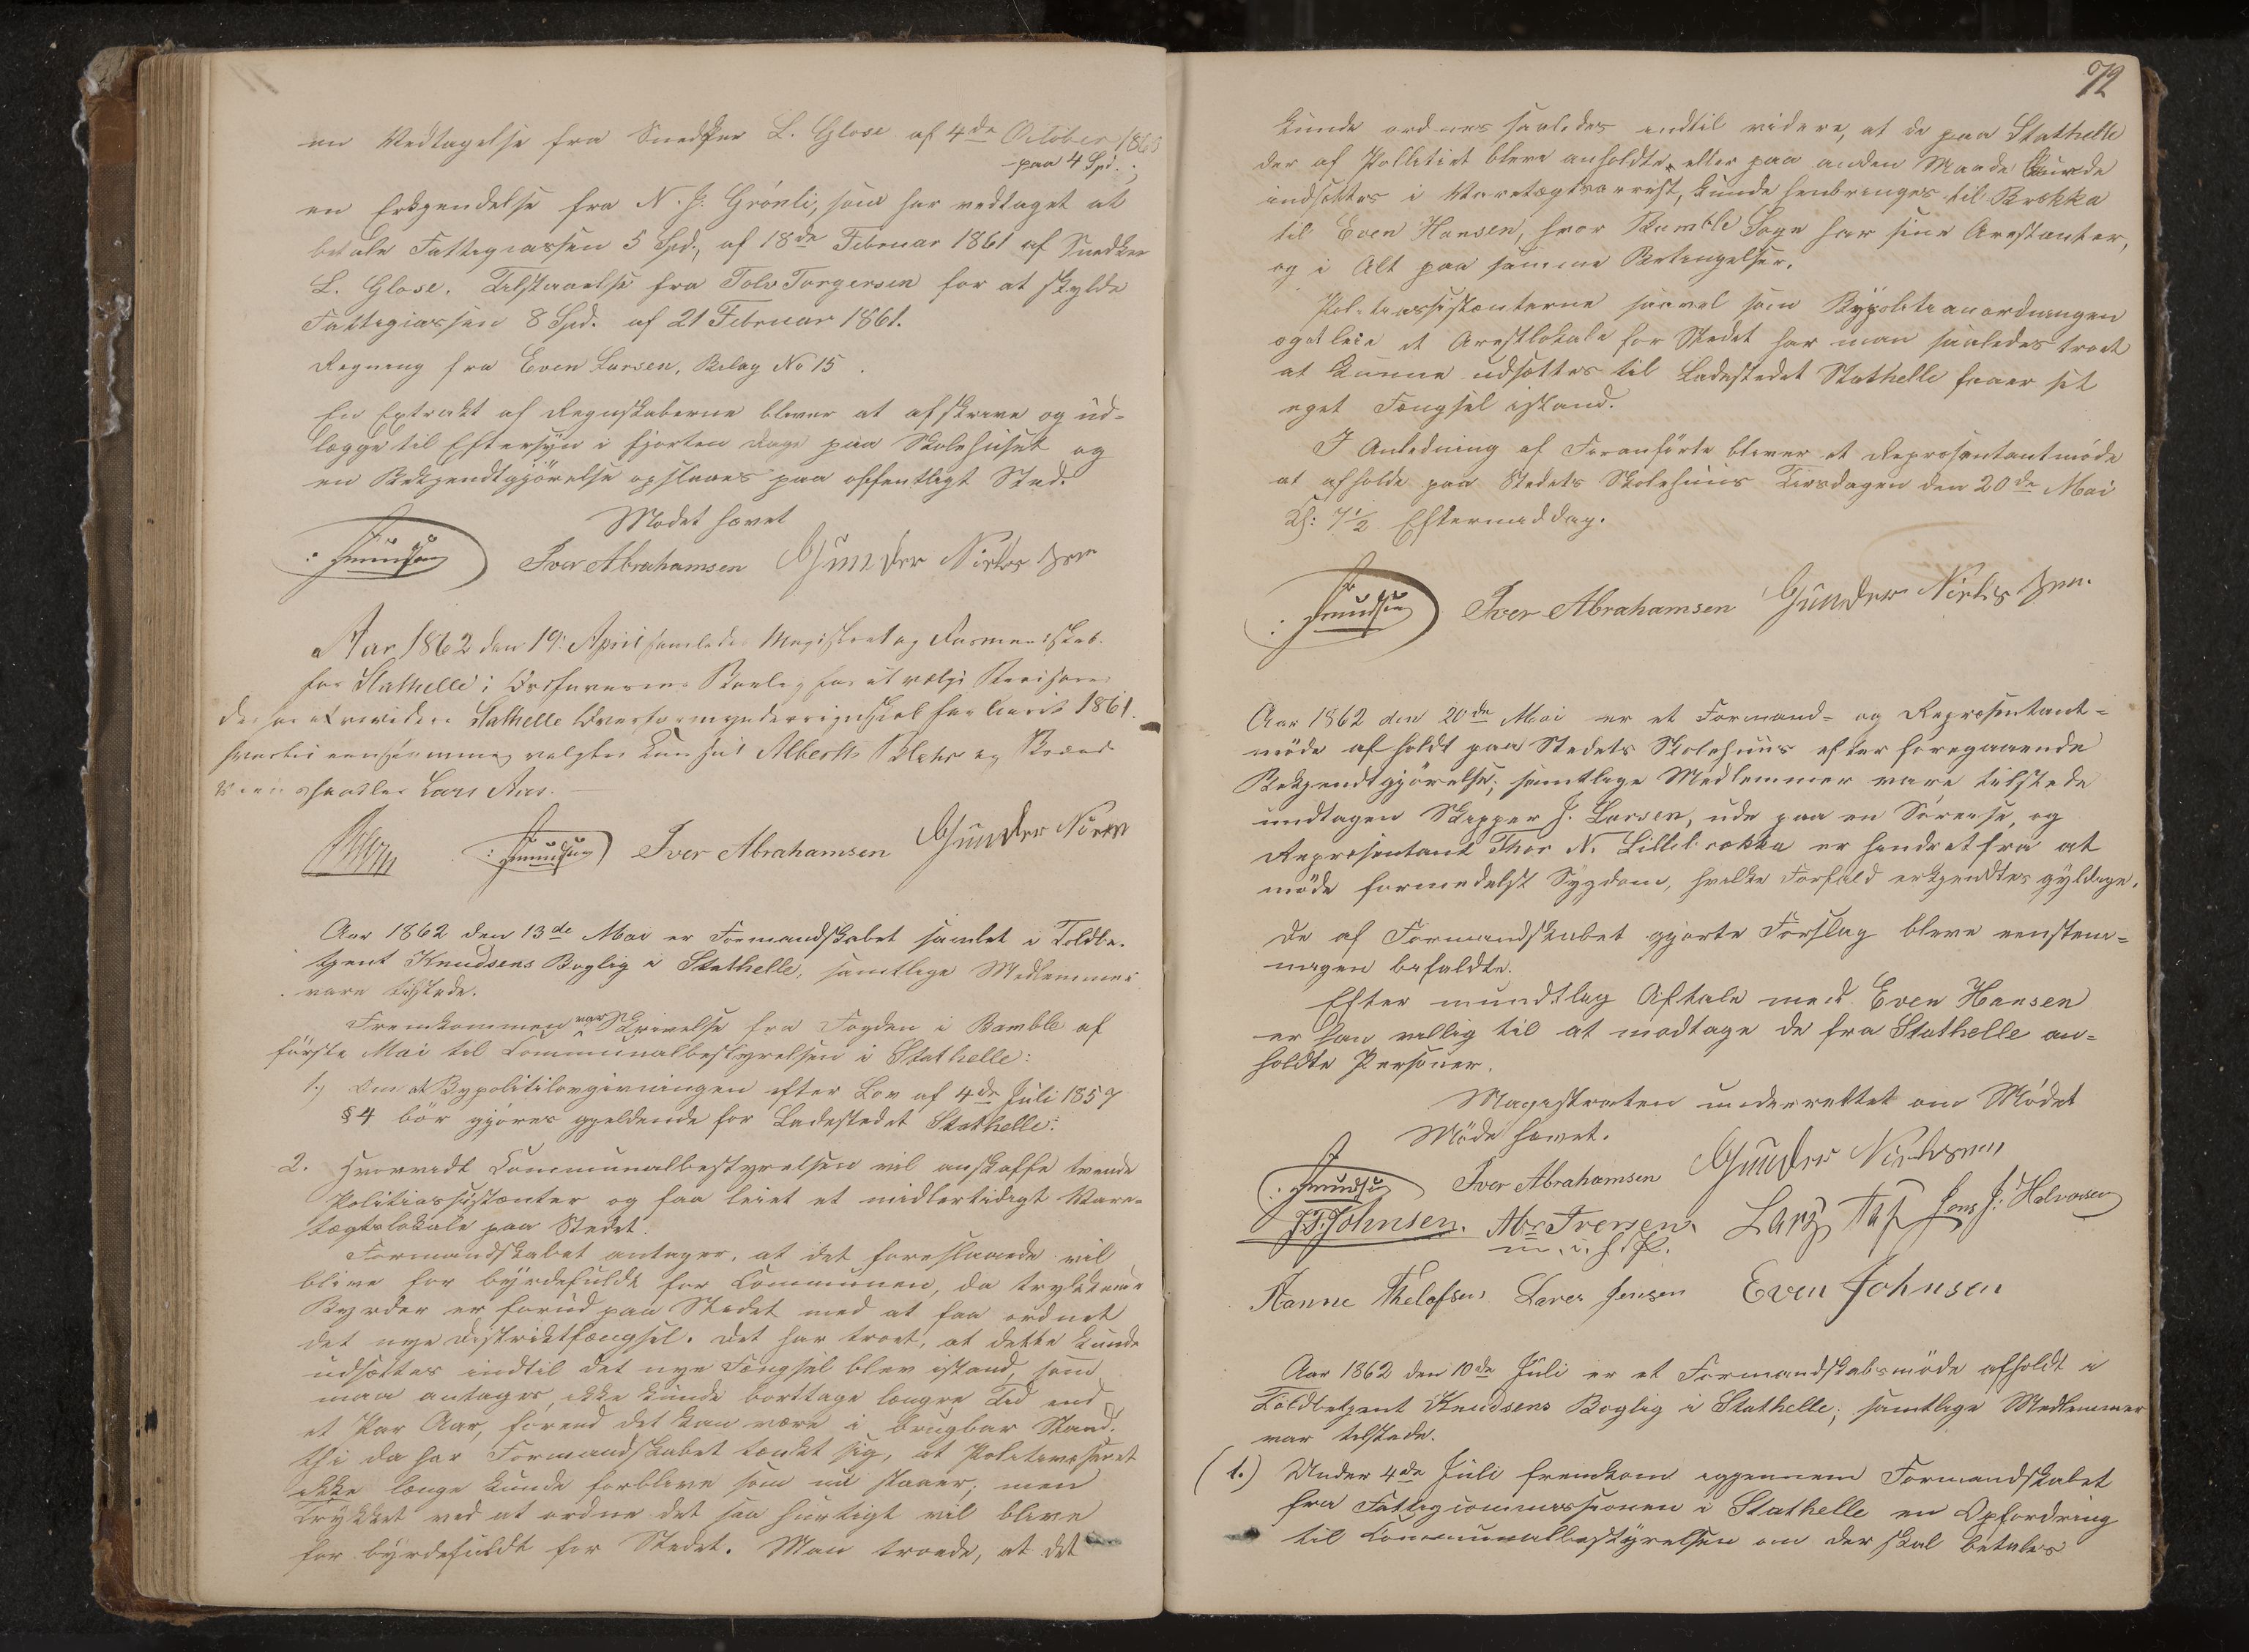 en Vedtagelse fra Snedker L. Glose af 4de October 1860
paa 4 Spd.;
en Erkjendelse fra N. J. Grönli, som har vedtaget at
betale Fattigcassen 5 Spd., af 18de Februar 1861 af Snedker
L. Glose. Tilstaaelse fra Tolv Torgersen for at skylde
Fattigcassen 8 Spd. af 21 Februar 1861.
Regning fra Even Larsen, Bilag No 15.
En Extrakt af Regnskaberne bliver at afskrive og ud-
lægge til Eftersyn i fjorten Dage paa Skolehuset og
en Bekjendtgjörelse opslaaes paa offentligt Sted.
Mödet hævet
Iver Abrahamsen Gunder Nirisen
Aar 1862 den 19 April samledes Magistrat og Formandskab
for Stathelle i Ordførerens Boelig for at vælge Revisorer
der har at revidere Stathelle Overformynderregnskab for Aaret 1861.
hvortil eenstemmig valgtes Consul Albert Blehr og
Lars Aas.
Iver Abrahamsen Gunder
Aar 1862 den 13de Mai er Formandskabet samlet i Toldbe-
tjent Knudsens Boglig i Stathelle, samtlige Medlemmer
vare tilstede.
Fremkommen var Skrivelse fra Fogden i Bamble af
förste Mai til Communalbestyrelsen i Stathelle:
1.) Om at Bypolitilovgivningen efter Lov af 4de Juli 1857
§ 4 bör gjöres gjeldende for Ladestedet Stathelle.
2. Hvorvidt Communalbestyrelsen vil anskaffe tvende
Politiassistenter og faa leiet et midlertidigt Vare-
tægtslokale paa Stedet.
Formandskabet antager, at det foreslaaede vil
blive for byrdefuldt for Communen, da trykkende
Byrder er forud paa Stedet med at faa ordnet
det nye Distriktfængsel. Det har troet, at dette kunde
udsættes indtil det nye Fængsel blev istand, som
man antager, ikke kunde borttage længre Tid end
et Par Aar, forend det kan være i brugbar Stand.
thi da har Formandskabet tænkt sig, at Politivæsenet
ikke længe kunde forblive som nu staaer; men
Trykket ved at ordne det saa hurtigt vil blive
for byrdefuldt for Stedet. Man troede, at det
72
kunde ordnes saaledes indtil videre, at de paa Stathelle
der af Politiet bleve anholdte, eller paa anden Maade burde
indsættes i Varetægtsarrest, kunde henbringes til Brekka
til Even Hansen, hvor Bamble Sogn har sine Arestanter,
og i Alt paa samme Betingelser.
Politiassistenterne saavel som Bypolitianordningen
og at leie et Arestlokale for Stedet har man saaledes troet
at kunne udsættes til Ladestedet Stathelle faaer sit
eget Fængsel istand.
I Anledning af Foranförte bliver et Repræsentantmöde
at afholde paa Stedets Skolehuus Tirsdagen den 20de Mai
Kl: 7½ Eftermiddag.
Iver Abrahamsen Gunder
Aar 1862 den 20de Mai er et Formand- og Repræsentant-
möde afholdt paa Stedets Skolehuus efter foregaaende
Bekjendtgjörelse; samtlige Medlemmer vare tilstede
undtagen Skipper J. Larsen, ude paa en Söreise, og
Repræsentant Thor N. Lillebrokka er hindret fra at
möde formedelst Sygdom, hvilke Forfald erkjendtes gyldige.
De af Formandskabet gjorte Forslag bleve eenstem-
migen bifaldte.
Efter mundtlig Aftale med Even Hansen
er han villig til at modtage de fra Stathelle an-
holdte Personer.
Magistraten underrettet om Mödet
Möde hævet.
Iver Abrahamsen Gunder
J. T. Johnsen. Abr Iversen Lars Aas Jens J. Halvorsen
m. i. f. P.
Hanne Thelefsen Lars Jensen Even Johnsen
Aar 1862 den 10de Juli er et Formandskabsmöde afholdt i
Toldbetjent Knudsens Boglig i Stathelle; samtlige Medlemmer
var tilstede.
(1.) Under 4de Juli fremkom igjennem Formandskabet
fra Fattigcommissionen i Stathelle en Opfordring
til Communalbestyrelsen om der skal betales